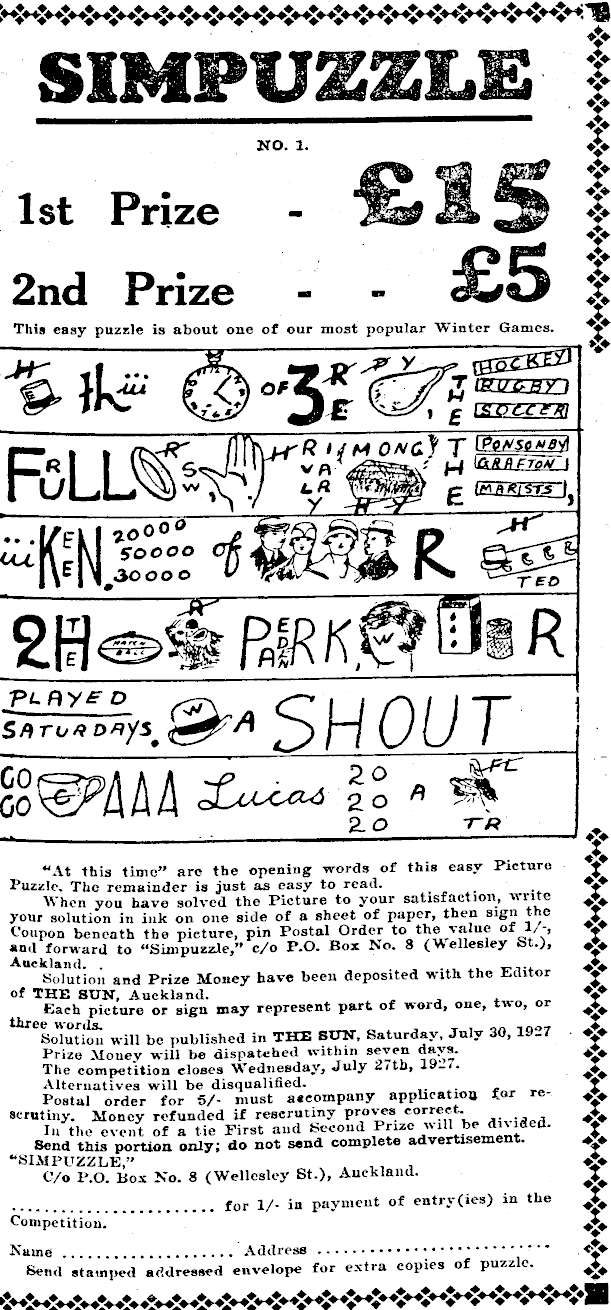 SIMPUZZLE
NO. 1.
1st Prize - £15
2nd Prize - - £5
This easy puzzle is about one of our most popular Winter Games.
H th iii OF 3 R E D Y , T H E HOCKEY RUGBY SOCCER
FULL R U R S W , H R I VA LR Y MONG H Y T H E PONSONBY GRAFTON MARISTS ,
iii KEN E E . 20000 50000 30000 of R H TED
2H T E MATCH BALL R PARK E D E N , W R
PLAYED SATURDAYS . W A SHOUT
GO GO C AAA Lucas 20 20 20 A FL TR
"At this time" are the opening words of this easy Picture
Puzzle. The remainder is just as easy to read.
When you have solved the Picture to your satisfaction, write
your solution in ink on one side of a sheet of paper, then sign the
Coupon beneath the picture, pin Postal Order to the value of 1/-,
and forward to "Simpuzzle," c/o P.O. Box No. 8 (Wellesley St.),
Auckland. .
Solution and Prize Money have been deposited with the Editor
of THE SUN, Auckland.
Each picture or sign may represent part of word, one, two, or
three words.
Solution will be published in THE SUN, Saturday, July 30, 1927
Prize Money will be dispatched within seven days.
The competition closes Wednesday, July 27th, 1927.
Alternatives will be disqualified.
Postal order for 5/- must accompany application for re-
scrutiny. Money refunded if rescrutiny proves correct.
In the event of a tie First and Second Prize will be divided.
Send this portion only; do not send complete advertisement.
"SIMPUZZLE,"
C/o P.O. Box No. 8 (Wellesley St.), Auckland.
....................... for 1/- in payment of entry(ies) in the
Competition.
Name ................... Address ..........................
Send stamped addressed envelope for extra copies of puzzle.